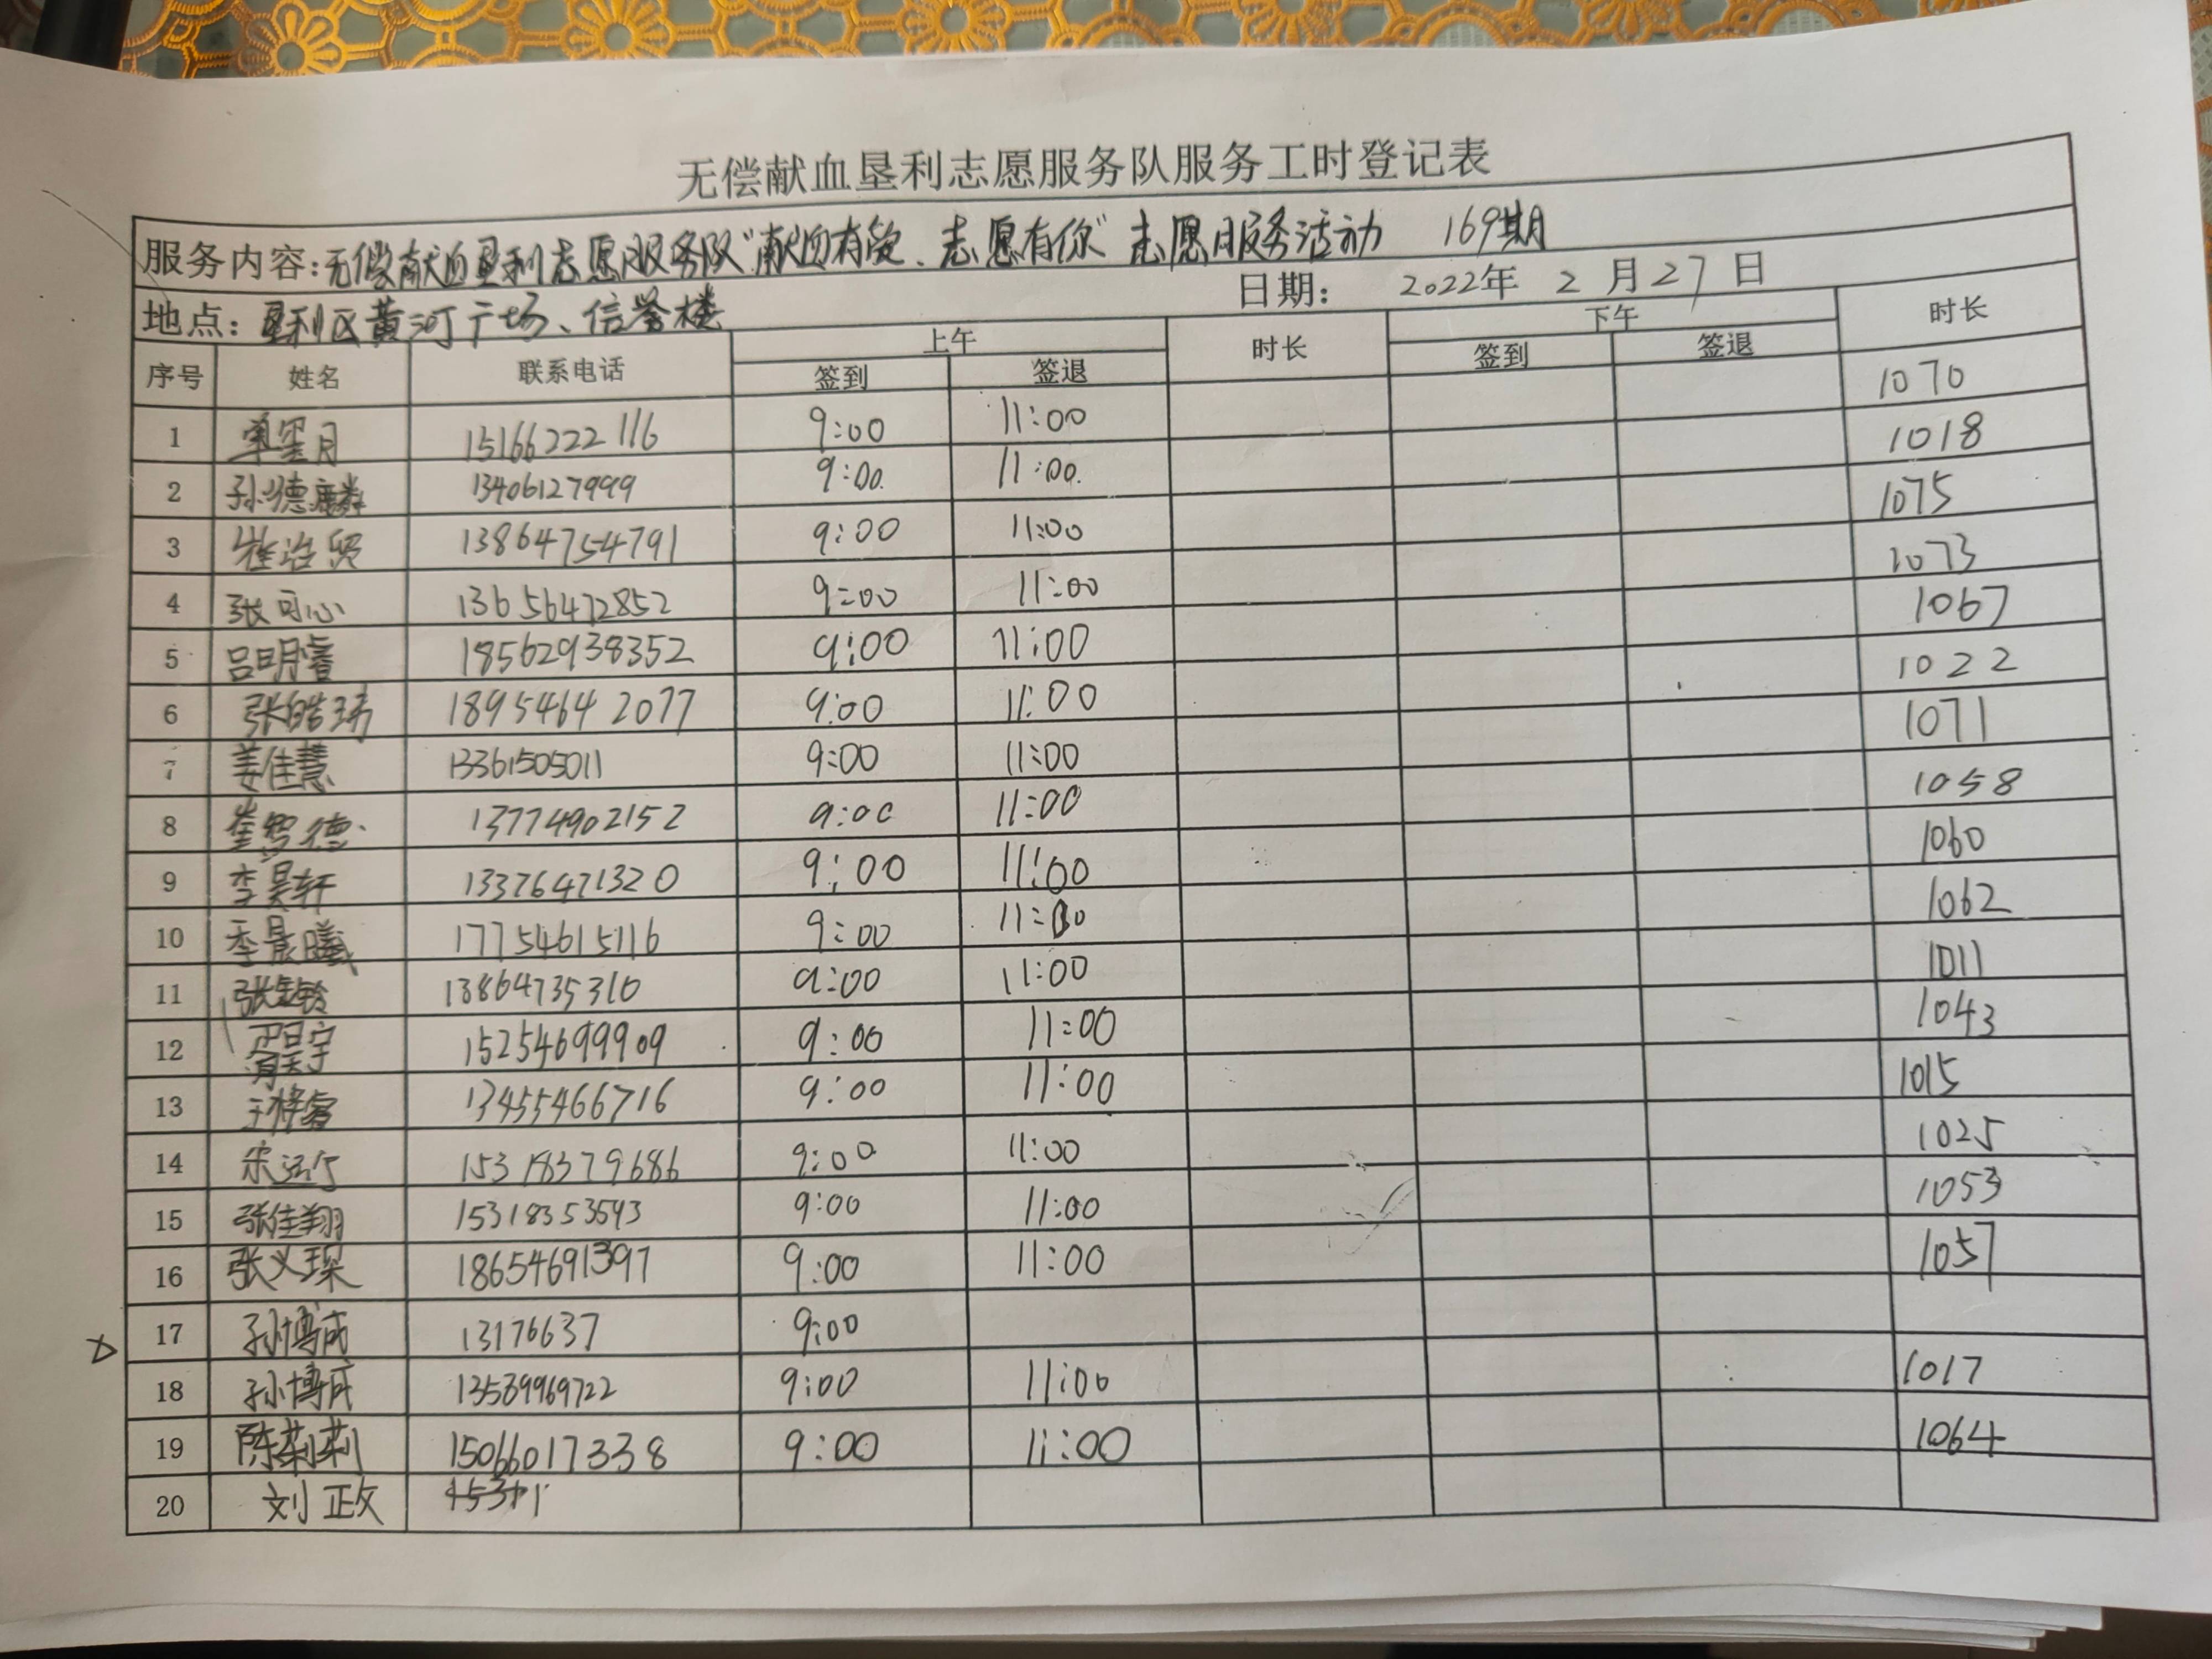 无偿献血垦利志愿服务队服务工时登记表
服务内容:无偿献血垦利志愿服务队“献血有我、志愿有你”志愿服务活动 169期
地点:垦利区黄河广场、信誉楼 日期: 2022年 2 月 27 日
序号 姓名 联系电话 上午 时长 下午 时长
签到 签退 签到 签退
1 单星月 15166222116 9:00 11:00 1070
2 孙德麟 13406127999 9:00 11:00 1018
3 13864754791 9:00 11:00 1075
4 张可心 13656472852 9:00 11:00 1073
5 吕明睿 18562938352 9:00 11:00 1067
6 张皓 18954642077 9:00 11:00 1022
7 姜佳慧 13361505011 9:00 11:00 1071
8 崔罗德 13774902152 9:00 11:00 1058
9 李昊轩 13376471320 9:00 11:00 1060
10 季晨曦 17754615116 9:00 11:00 1062
11 13864735310 9:00 11:00 1011
12 15254699909 9:00 11:00 1043
13 王梓睿 13455466716 9:00 11:00 1015
14 宋运 15318379686 9:00 11:00 1025
15 张佳翔 15318353543 9:00 11:00 1053
16 张义琛 18654691397 9:00 11:00 1057
17 孙博成 13176637 9:00
18 孙博成 13589969722 9:00 11:00 1017
19 陈莉莉 15066017338 9:00 11:00 1064
20 刘政